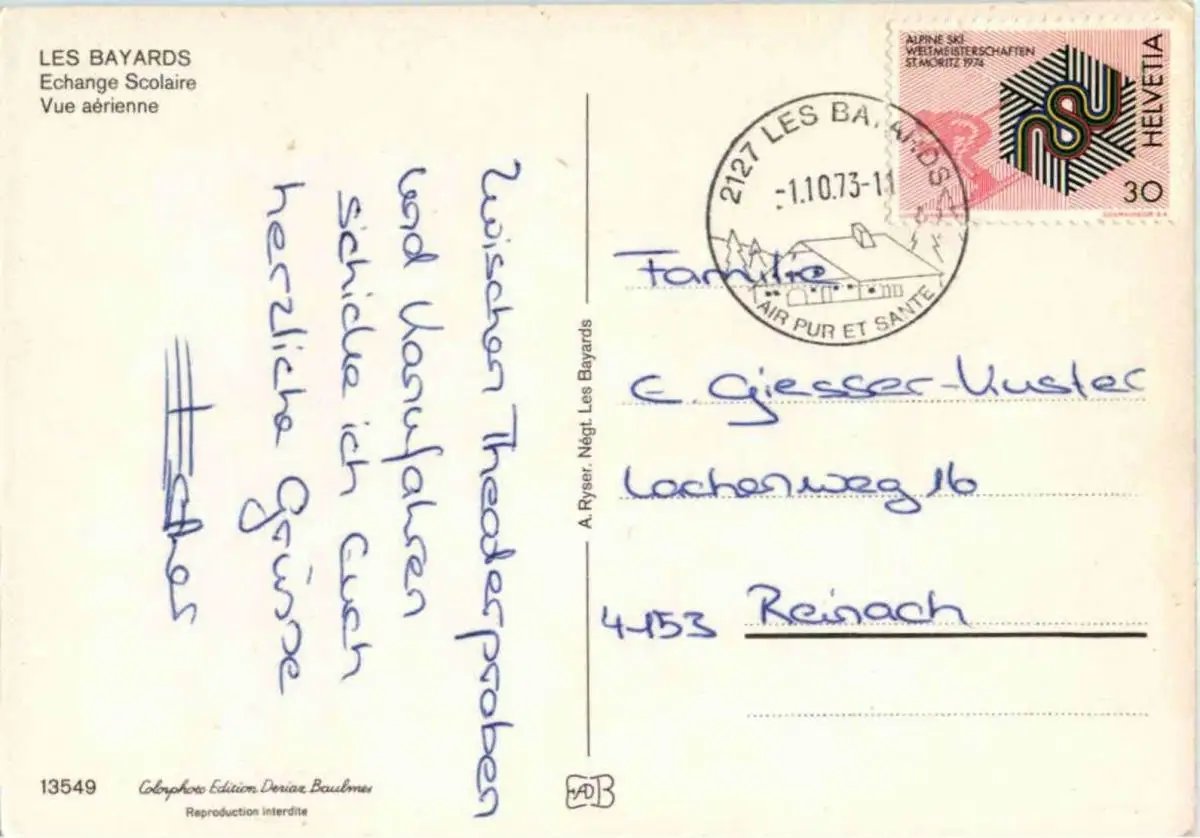 LES BAYARDS
Echange Scolaire
Vue aérienne
Zwischen Theaterproben
und Kanufahren
schicke ich Euch
herzliche Grüsse
Esther
A. Ryser. Négt. Les Bayards
ALPINE SKI
WELTMEISTERSCHAFTEN
ST. MORITZ 1974
HELVETIA
30
COURVOISIER S.A.
2127 LES BAYARDS
-1.10.73-11
AIR PUR ET SANTE
Familie
E. Giesser-Kuster
Lochenweg 16
4153 Reinach
13549
Colorphoto Edition Deriaz Baulmes
Reproduction interdite